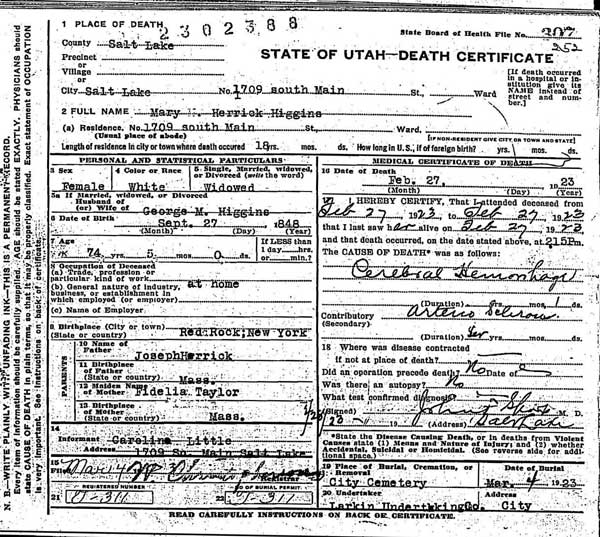 2302388
1 PLACE OF DEATH
State Board of Health File No. 307
252
County Salt Lake
STATE OF UTAH—DEATH CERTIFICATE
Precinct
or
Village
or
[If death occurred in a hospital or institution give its NAME instead of street and number.]
City Salt Lake No. 1709 south Main St., Ward
2 FULL NAME Mary Herrick Higgins
(a) Residence. No. 1709 south Main St., Ward.
(Usual place of abode) [IF NON-RESIDENT GIVE CITY OR TOWN AND STATE]
Length of residence in city or town where death occurred 18 yrs. mos. ds. How long in U. S., if of foreign birth? yrs. mos. ds.
PERSONAL AND STATISTICAL PARTICULARS
3 Sex 4 Color or Race 5 Single, Married, widowed, or Divorced (write the word)
Female White Widowed
5a If Married, widowed, or Divorced
Husband of
(or) Wife of George M. Higgins
6 Date of Birth Sept. 27 1848
(Month) (Day) (Year)
7 Age If LESS than
74 yrs. 5 mos. 0 ds. 1 day...hrs. or....min.?
8 Occupation of Deceased
(a) Trade, profession or particular kind of work
at home
(b) General nature of industry, business, or establishment in which employed (or employer)
(c) Name of Employer
9 Birthplace (City or town)
(State or country) Red Rock, New York
PARENTS
10 Name of Father Joseph Herrick
11 Birthplace of Father
(State or country) Mass.
12 Maiden Name of Mother Fidelia Taylor
13 Birthplace of Mother
(State or country) Mass.
14
Informant Caroline Little
Address 1709 So. Main Salt Lake
15
Registrar
REGISTERED NUMBER
NO OF BURIAL PERMIT
21
22
MEDICAL CERTIFICATE OF DEATH
16 Date of Death
Feb. 27, 1923
(Month) (Day) (Year)
17 I HEREBY CERTIFY, That I attended deceased from
Feb 27, 1923, to Feb 27, 1923
that I last saw her alive on Feb 27, 1923
and that death occurred, on the date stated above, at 215Pm.
The CAUSE OF DEATH* was as follows:
Cerebral Hemorrhage
(Duration) yrs. mos. 1 ds.
Contributory
(Secondary)
(Duration) yrs. mos. ds.
18 Where was disease contracted
If not at place of death?
Did an operation precede death? No Date of
Was there an autopsy? No
What test confirmed diagnosis?
(Signed) M. D.
(Address) Salt Lake
*State the Disease Causing Death, or in deaths from Violent Causes state (1) Means and Nature of Injury; and (2) whether Accidental, Suicidal or Homicidal. (See reverse side for additional space.)
19 Place of Burial, Cremation, or Removal Date of Burial
City Cemetery Mar. 4 1923
20 Undertaker Address
Larkin Undertking Co. City
READ CAREFULLY INSTRUCTIONS ON BACK OF CERTIFICATE.
N. B.—WRITE PLAINLY WITH UNFADING INK—THIS IS A PERMANENT RECORD.
Every item of information should be carefully supplied. AGE should be stated EXACTLY. PHYSICIANS should
state CAUSE OF DEATH in plain terms, so that it may be properly classified. Exact statement of OCCUPATION
is very important. See instructions on back of certificate.